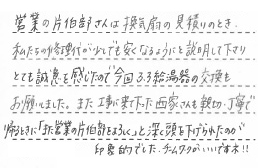 営業の片伯部さんは換気扇の見積りのとき、
私たちの修理代が少しでも安くなるようにと説明して下さり
とても誠意を感じたので今回ユーユー給湯器の交換も
お願いしました。また工事に来て下さった西家さんも親切、丁寧で
帰るときに「また営業の片伯部をよろしく」と深く頭を下げられたのが
印象的でした。チームワークがいいですネ!!